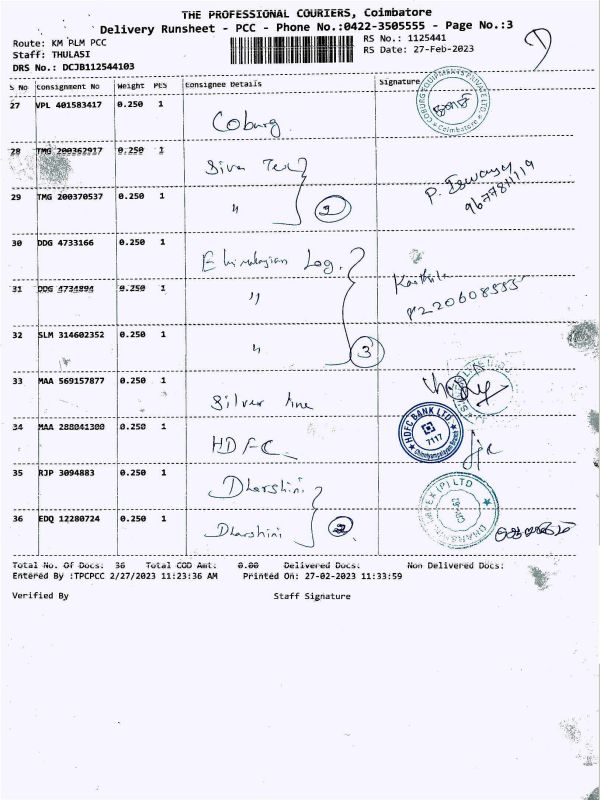 THE PROFESSIONAL COURIERS, Coimbatore
Delivery Runsheet - PCC - Phone No.:0422-3505555 - Page No.:3
Route: KM PLM PCC
RS No.: 1125441
Staff: THULASI
RS Date: 27-Feb-2023
DRS No.: DCJB112544103
S No Consignment No Weight PES Consignee Details Signature
27 VPL 401583417 0.250 1 Coburg
28 TMG 200362917 0.250 1 Siva Tex
29 TMG 200370537 0.250 1 〃 2
P. Eswaran
9677811119
30 DDG 4733166 0.250 1 Log.
31 DDG 4734894 0.250 1 〃
32 SLM 314602352 0.250 1 〃 3
33 MAA 569157877 0.250 1 Silver line
34 MAA 288041300 0.250 1 HDFC
HDFC BANK LTD.
7117
35 RJP 3094883 0.250 1 Dharshini
36 EDQ 12280724 0.250 1 Dharshini 2
Total No. Of Docs: 36 Total COD Amt: 0.00 Delivered Docs: Non Delivered Docs:
Entered By :TPCPCC 2/27/2023 11:23:36 AM Printed On: 27-02-2023 11:33:59
Verified By Staff Signature